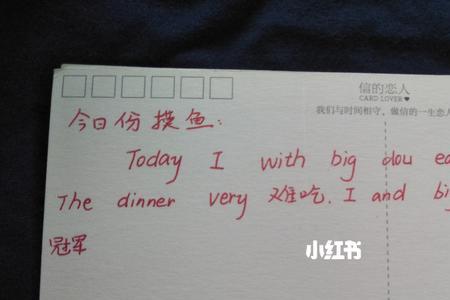 信的恋人
CARD LOVER
我们与时间相守，做信的一生恋人
今日份摸鱼：
Today I with big dou ea
The dinner very 难吃. I and big
冠军
小红书